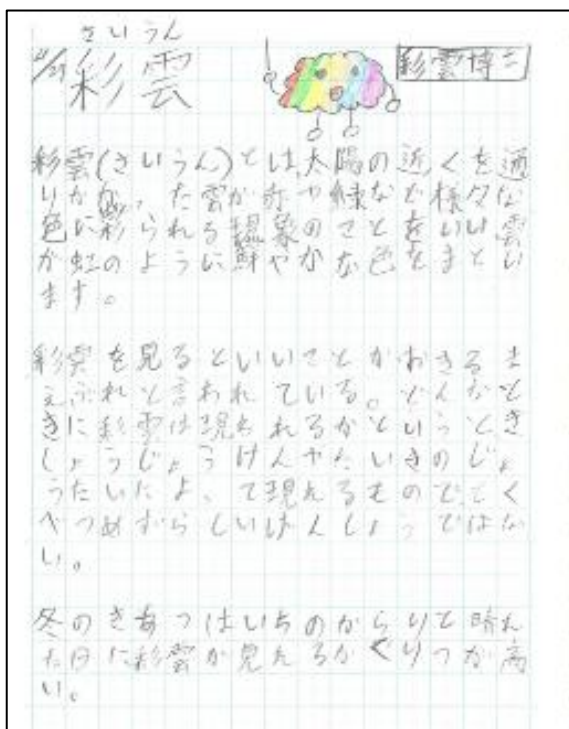 さいうん
11/29 彩雲
彩雲博士
彩雲(さいうん)とは、太陽の近くを通
りかかった雲が赤や緑など様々な
色に彩られる現象のことをいい雲
が虹のように鮮やかな色をまとい
ます。
彩雲を見るといいことがおきるま
えぶれと言われている。どんなと
きに彩雲は現われるかというとき
しょうじょうけんやたいきのじょ
うたいによって現れるものでとく
べつめずらしいげんしょうではな
い。
冬のきあつはいちのからりと晴れ
た日に彩雲が見えるかくりつが高
い。